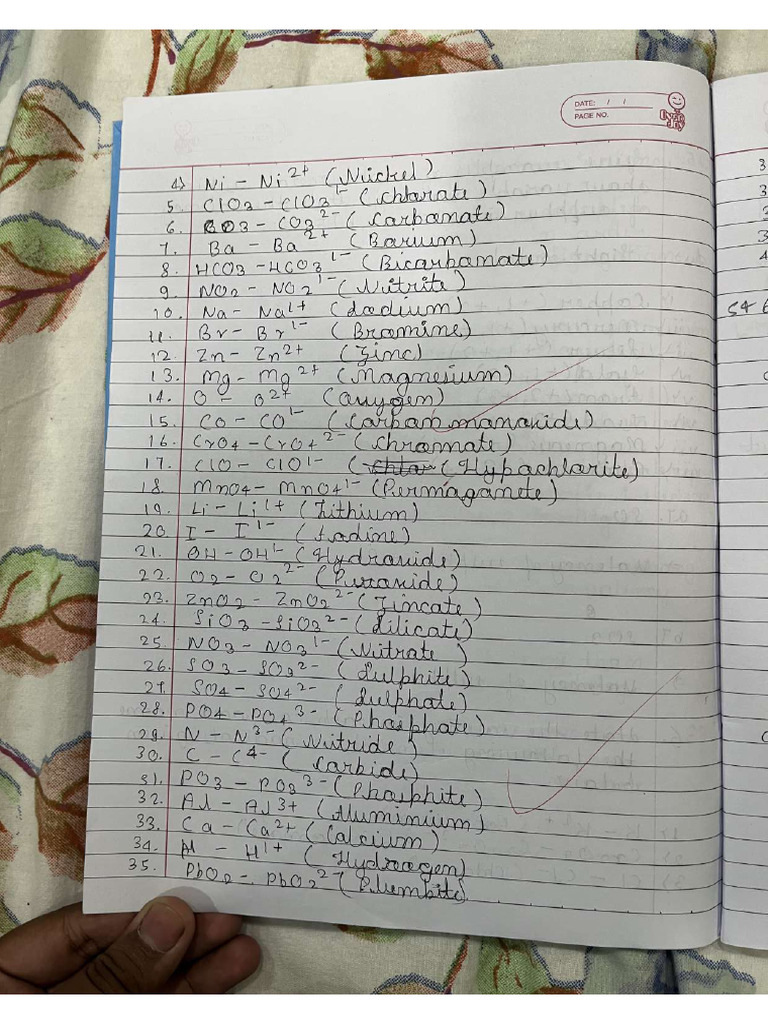 DATE: / /
PAGE NO.
4) Ni - Ni2+ (Nickel)
5. ClO3 - ClO3 1- (Chlorate)
6. CO3 - CO3 2- (Carbonate)
7. Ba - Ba2+ (Barium)
8. HCO3 - HCO3 1- (Bicarbomate)
9. NO2 - NO2 1- (Nitrite)
10. Na - Na1+ (Sodium)
11. Br - Br1- (Bromine)
12. Zn - Zn2+ (Zinc)
13. Mg - Mg2+ (Magnesium)
14. O - O2+ (Oxygen)
15. CO - CO1- (Carbon monoxide)
16. CrO4 - CrO4 2- (Chromate)
17. ClO - ClO1- (Hypochlorite)
18. MnO4 - MnO4 1- (Permaganete)
19. Li - Li1+ (Lithium)
20. I - I1- (Iodine)
21. OH - OH1- (Hydroxide)
22. O2 - O2 2- (Peroxide)
23. ZnO2 - ZnO2 2- (Zincate)
24. SiO3 - SiO3 2- (Silicate)
25. NO3 - NO3 1- (Nitrate)
26. SO3 - SO3 2- (Sulphite)
27. SO4 - SO4 2- (Sulphate)
28. PO4 - PO4 3- (Phosphate)
29. N - N3- (Nitride)
30. C - C4- (Carbide)
31. PO3 - PO3 3- (Phosphite)
32. Al - Al3+ (Aluminium)
33. Ca - Ca2+ (Calcium)
34. H - H1+ (Hydrogen)
35. PbO2 - PbO2 2- (Plumbite)